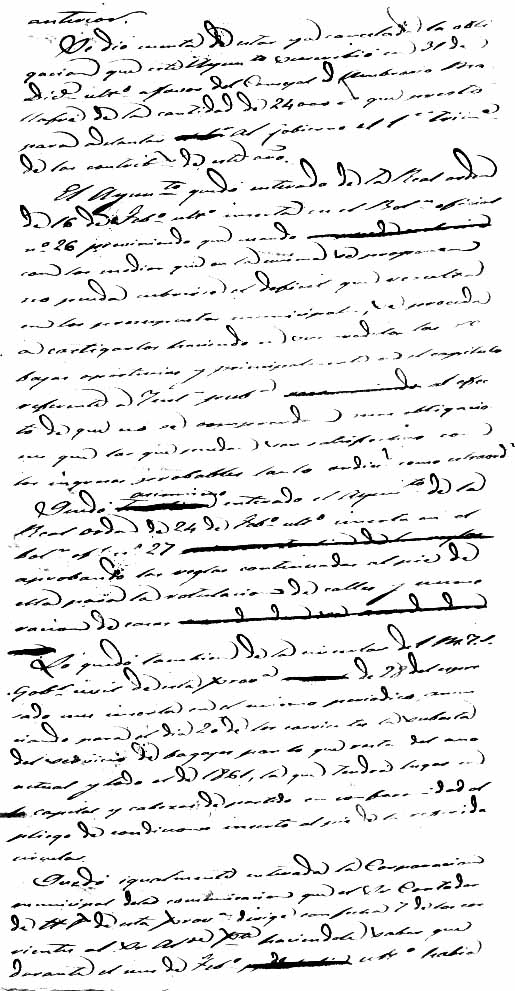 anterior.
Se dió cuenta de estar ya cancelada la obli
gacion que este Ayunto suscribió en 31 de
Dice ulto a favor del Concejal D.
de la cantidad de 24000 rs que prestó
para adelantar al gobierno el 1er trime
de las contribs de este año.
El Ayunto quedó enterado de la Real orden
de 16 de Febo ulto inserta en el Boln oficial
no 26 previniendo que cuando
con los medios que en la misma se proponen
no pueda cubrirse el deficit que resulta
en los presupuestos municipales, se proceda
a castigarlos haciendo en sus gastos las re
bajas oportunas y principalmente en el capitulo
referente a puba al efec
to de que no se comprendan mas obligacio
nes que las que puedan ser satisfechas con
los ingresos probables tanto ordins como estraords
Quedó asimismo enterado el Ayunto de la
Real orden de 24 de Febo ulto inserta en el
boln ofl no 27
aprobando las reglas continuadas al pié de
ella para la rotulacion de calles y nume
racion de casas
Lo quedó tambien de la circular del M. I. S.
Gobr civil de esta Prova de 28 del espre
sado mes inserta en el mismo periodico anun
ciando para el dia 20 de los corrientes la subasta
del servicio de bagajes por lo que resta del año
actual y todo el de 1861, la que tendrá lugar en
la capital y cabezas de partido en conformidad al
pliego de condiciones inserto al pié de la referida
circular.
Quedó igualmente enterada la Corporacion
municipal de la comunicacion que el Sr Contador
de H. Pa de esta Prova dirige con fecha 7 de los cor
rientes al Sr Alcde haciendole saber que
durante el mes de Febo ulto habia